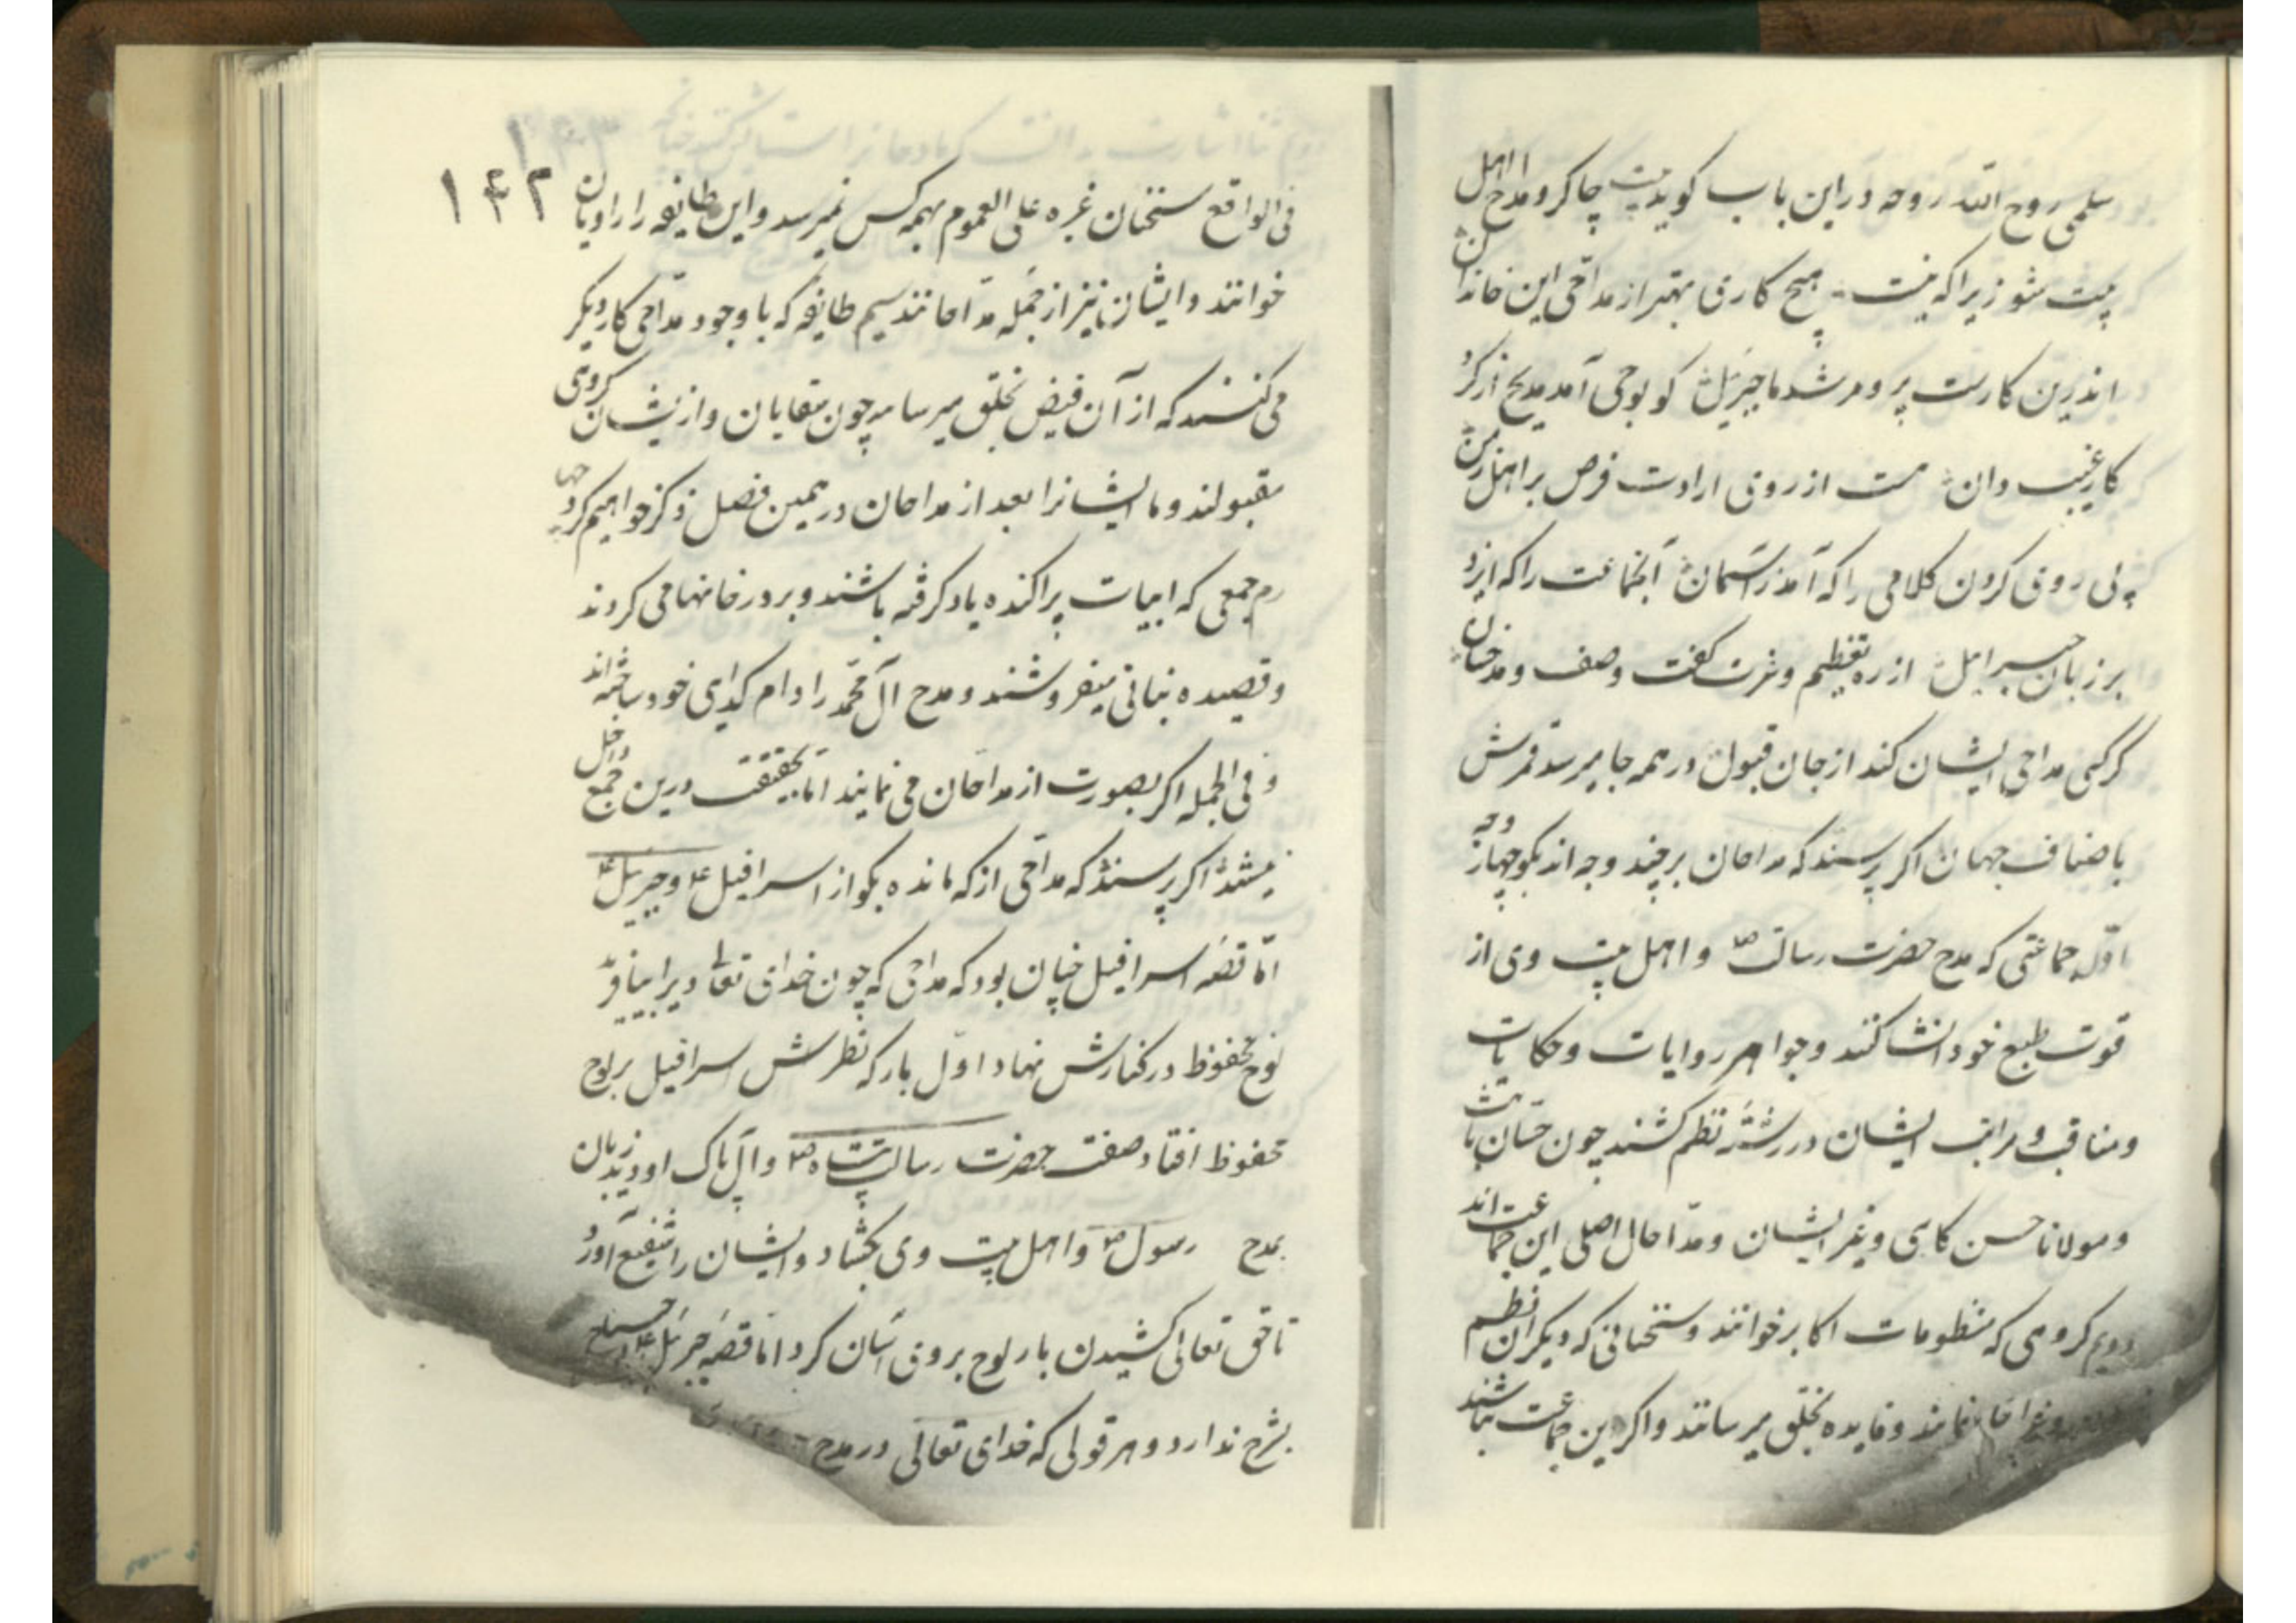 سلمی روح الله روحه دراین باب کوید بیت چاکر و مداح اهل
بیت شو زیرا که نیست هیچ کاری بهتر از مداحی این خاندان
اندرین کارست پیرو مرشد ما جبرئیل کو بوحی آمد مدیح از کرد
کار غیب دان هست از روی ارادت فرض بر اهل زمین
پی روی کردن کلامی را که آمد ز آسمان آنجماعت را که ایزد
بر زبان جبرائیل از ره تعظیم و عزت گفت وصف و مدحشان
گر کسی مداحی ایشان کند از جان قبول در همه جا میرسد قدرش
باضعاف جهان اکر پرسند که مداحان بر چند وجه اند بکو چهار وجه
اول جماعتی که مدح حضرت رسالت ص و اهل بیت وی از
قوت طبع خود انشا کنند و جواهر روایات و حکایات
و مناقب و مراتب ایشان در رشته نظم کشند چون حسان ثابت
و مولانا حسن کاشی و غیر ایشان و مداحان اصلی این جماعت اند
دویم کروهی که منظومات اکابر خوانند و سخنانی که دیکران نظم
نمایند و فایده بخلق میرسانند و اکر این جماعت نباشند
۱۴۲
فی الواقع سخنان غره علی العموم بهمه کس نمیرسد و این طایفه را راویان
خوانند و ایشان نیز از جمله مداحانند سیم طایفه که با وجود مداحی کار دیکر
می کنند که از آن فیض بخلق میرسانند چون سقایان و از ایشان کروهی
مقبولند و ما ایشانرا بعد از مداحان در همین فصل ذکر خواهیم کرد چها
رم جمعی که ابیات پراکنده یاد کرفته باشند و بر در خانها می کردند
و قصیده بنانی میفروشند و مدح آل محمد را دام کدای خود ساخته اند
و فی الجمله اکر بصورت از مداحان می نمایند اما بحقیقت درین جمع داخل
نیستند اکر پرسند که مداحی از که مانده بکو از اسرافیل ع و جبرئیل ع
اما قصه اسرافیل چنان بود که مداحی که چون خدای تعالی ویرا بیافرید
لوح محفوظ در کنارش نهاد اول بار که نظرش اسرافیل بر لوح
محفوظ افتاد صفت حضرت رسالت پناه ص و آل پاک او دید زبان
بمدح رسول ص و اهل بیت وی بکشاد و ایشان را شفیع آورد
تا حق تعالی کشیدن بار لوح بروی آسان کرد اما قصه جبرئیل ع
بشرح ندارد و هر قولی که خدای تعالی در مدح